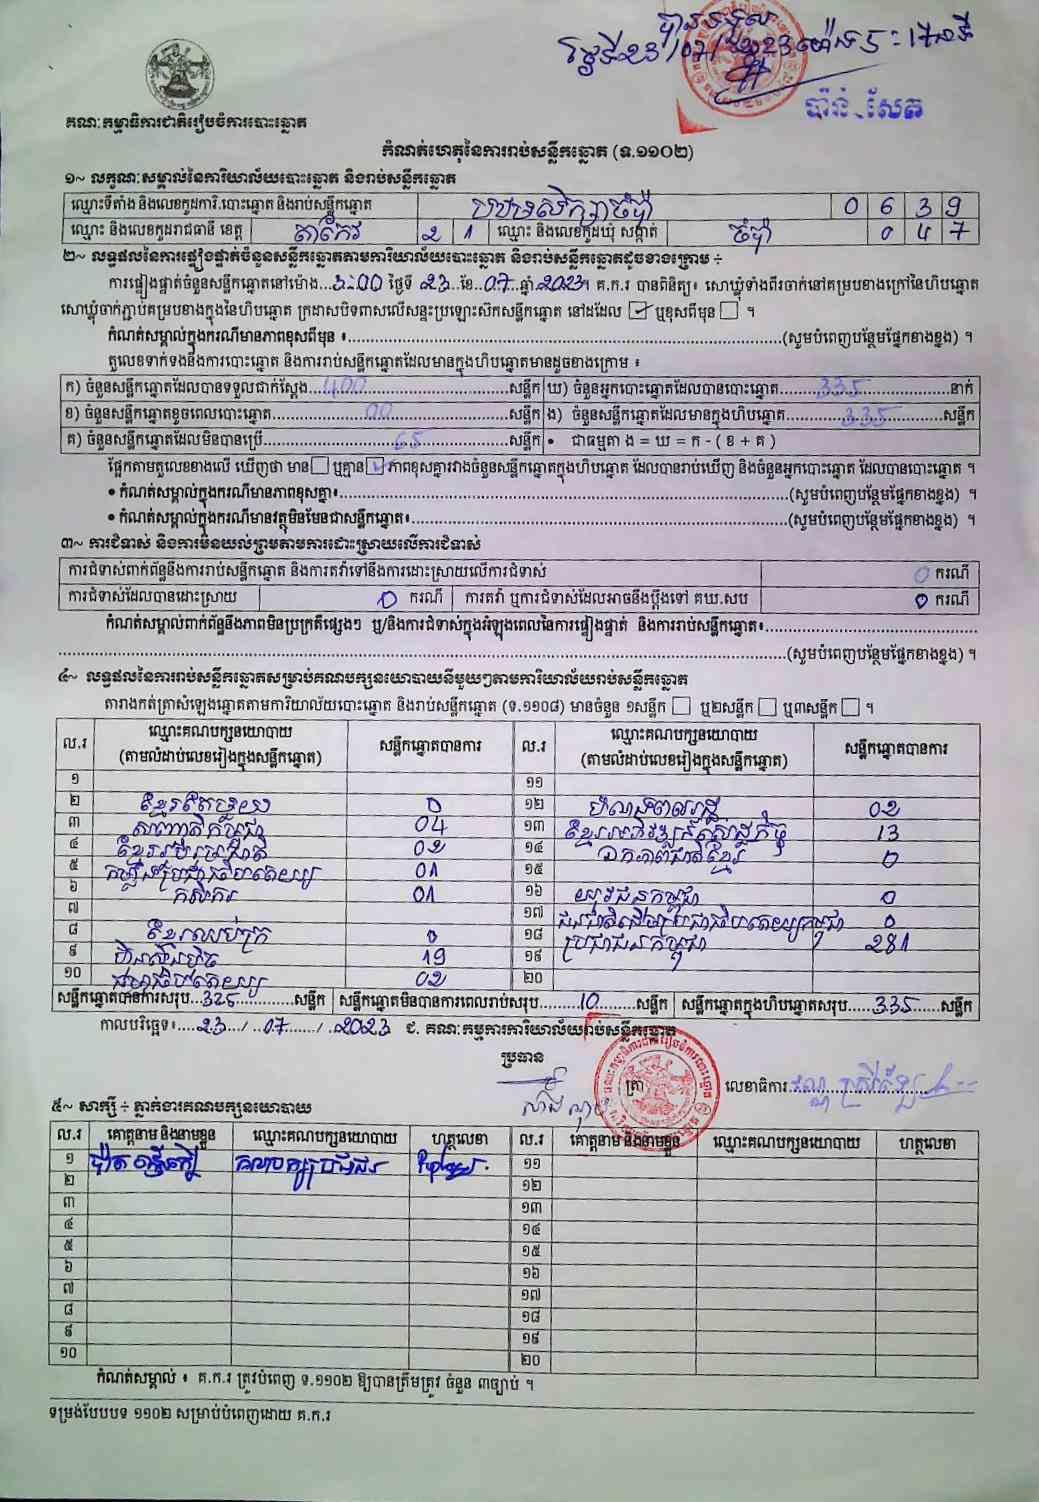 ថ្ងៃទី 23/07/2023 ម៉ោង 5:17 នាទី
គណៈកម្មាធិការជាតិរៀបចំការបោះឆ្នោត
កំណត់ហេតុនៃការរាប់សន្លឹកឆ្នោត (ទ.១១០២)
១~ លក្ខណៈសម្គាល់នៃការិយាល័យបោះឆ្នោត និងរាប់សន្លឹកឆ្នោត
ឈ្មោះទីតាំង និងលេខកូដការិ.បោះឆ្នោត និងរាប់សន្លឹកឆ្នោត 0 6 3 9
ឈ្មោះ និងលេខកូដរាជធានី ខេត្ត តាកែវ 2 1 ឈ្មោះ និងលេខកូដឃុំ សង្កាត់ ចំប៉ា 0 4 7
២~ លទ្ធផលនៃការផ្ទៀងផ្ទាត់ចំនួនសន្លឹកឆ្នោតតាមការិយាល័យបោះឆ្នោត និងរាប់សន្លឹកឆ្នោតដូចខាងក្រោម ÷
ការផ្ទៀងផ្ទាត់ចំនួនសន្លឹកឆ្នោតនៅម៉ោង...3:00 ថ្ងៃទី 23...ខែ..07...ឆ្នាំ 2023។ គ.ក.រ បានពិនិត្យ៖ សោឃ្លុំទាំងពីរចាក់នៅគម្របខាងក្រៅនៃហិបឆ្នោត
សោឃ្លុំចាក់ភ្ជាប់គម្របខាងក្នុងនៃហិបឆ្នោត ក្រដាសបិទពាសលើសន្ទះប្រឡោះស៊កសន្លឹកឆ្នោត នៅដដែល ☑ ឬខុសពីមុន ☐ ។
កំណត់សម្គាល់ក្នុងករណីមានភាពខុសពីមុន ៖...(សូមបំពេញបន្ថែមផ្នែកខាងខ្នង) ។
តួលេខទាក់ទងនឹងការបោះឆ្នោត និងការរាប់សន្លឹកឆ្នោតដែលមានក្នុងហិបឆ្នោតមានដូចខាងក្រោម ៖
ក) ចំនួនសន្លឹកឆ្នោតដែលបានទទួលជាក់ស្តែង...400...សន្លឹក ឃ) ចំនួនអ្នកបោះឆ្នោតដែលបានបោះឆ្នោត...335...នាក់
ខ) ចំនួនសន្លឹកឆ្នោតខូចពេលបោះឆ្នោត...00...សន្លឹក ង) ចំនួនសន្លឹកឆ្នោតដែលមានក្នុងហិបឆ្នោត...335...សន្លឹក
គ) ចំនួនសន្លឹកឆ្នោតដែលមិនបានប្រើ...65...សន្លឹក • ជាធម្មតា ង = ឃ = ក - ( ខ + គ )
ផ្អែកតាមតួលេខខាងលើ ឃើញថា មាន ☐ ឬគ្មាន ☑ ភាពខុសគ្នារវាងចំនួនសន្លឹកឆ្នោតក្នុងហិបឆ្នោត ដែលបានរាប់ឃើញ និងចំនួនអ្នកបោះឆ្នោត ដែលបានបោះឆ្នោត ។
• កំណត់សម្គាល់ក្នុងករណីមានភាពខុសគ្នា៖...(សូមបំពេញបន្ថែមផ្នែកខាងខ្នង) ។
• កំណត់សម្គាល់ក្នុងករណីមានវត្ថុមិនមែនជាសន្លឹកឆ្នោត៖...(សូមបំពេញបន្ថែមផ្នែកខាងខ្នង) ។
៣~ ការជំទាស់ និងការមិនយល់ព្រមតាមការដោះស្រាយលើការជំទាស់
ការជំទាស់ពាក់ព័ន្ធនឹងការរាប់សន្លឹកឆ្នោត និងការតវ៉ាទៅនឹងការដោះស្រាយលើការជំទាស់ 0 ករណី
ការជំទាស់ដែលបានដោះស្រាយ 0 ករណី ការតវ៉ា ឬការជំទាស់ដែលអាចនឹងប្តឹងទៅ គឃ.សប 0 ករណី
កំណត់សម្គាល់ពាក់ព័ន្ធនឹងភាពមិនប្រក្រតីផ្សេងៗ ឬ/និងការជំទាស់ក្នុងអំឡុងពេលនៃការផ្ទៀងផ្ទាត់ និងការរាប់សន្លឹកឆ្នោត៖...
...(សូមបំពេញបន្ថែមផ្នែកខាងខ្នង) ។
៤~ លទ្ធផលនៃការរាប់សន្លឹកឆ្នោតសម្រាប់គណបក្សនយោបាយនីមួយៗតាមការិយាល័យរាប់សន្លឹកឆ្នោត
តារាងកត់ត្រាសំឡេងឆ្នោតតាមការិយាល័យបោះឆ្នោត និងរាប់សន្លឹកឆ្នោត (ទ.១១០៨) មានចំនួន ១សន្លឹក ☐ ឬ២សន្លឹក ☐ ឬ៣សន្លឹក ☐ ។
ល.រ ឈ្មោះគណបក្សនយោបាយ (តាមលំដាប់លេខរៀងក្នុងសន្លឹកឆ្នោត) សន្លឹកឆ្នោតបានការ ល.រ ឈ្មោះគណបក្សនយោបាយ (តាមលំដាប់លេខរៀងក្នុងសន្លឹកឆ្នោត) សន្លឹកឆ្នោតបានការ
១ ១១
២ ខ្មែរតែមួយ 0 ១២ 02
៣ សញ្ជាតិកម្ពុជា 04 ១៣ 13
៤ ខ្មែររួបរួមជាតិ 02 ១៤ ឯកភាពជាតិខ្មែរ 0
៥ កម្លាំងប្រជាធិបតេយ្យ 01 ១៥
៦ កសិករ 01 ១៦ យុវជនកម្ពុជា 0
៧ ១៧ ជនជាតិដើមប្រជាធិបតេយ្យកម្ពុជា 0
៨ ខ្មែរឈប់ក្រ 0 ១៨ ប្រជាជនកម្ពុជា 281
៩ ហ៊្វុនស៊ិនប៉ិច 19 ១៩
១០ 02 ២០
សន្លឹកឆ្នោតបានការសរុប...325...សន្លឹក សន្លឹកឆ្នោតមិនបានការពេលរាប់សរុប...10...សន្លឹក សន្លឹកឆ្នោតក្នុងហិបឆ្នោតសរុប...335...សន្លឹក
កាលបរិច្ឆេទ៖...23.../...07.../...2023 ជ. គណៈកម្មការការិយាល័យរាប់សន្លឹកឆ្នោត
ប្រធាន
ត្រា លេខាធិការ
៥~ សាក្សី ÷ ភ្នាក់ងារគណបក្សនយោបាយ
ល.រ គោត្តនាម និងនាមខ្លួន ឈ្មោះគណបក្សនយោបាយ ហត្ថលេខា ល.រ គោត្តនាម និងនាមខ្លួន ឈ្មោះគណបក្សនយោបាយ ហត្ថលេខា
១ ១១
២ ១២
៣ ១៣
៤ ១៤
៥ ១៥
៦ ១៦
៧ ១៧
៨ ១៨
៩ ១៩
១០ ២០
កំណត់សម្គាល់ ៖ គ.ក.រ ត្រូវបំពេញ ទ.១១០២ ឱ្យបានត្រឹមត្រូវ ចំនួន ៣ច្បាប់ ។
ទម្រង់បែបបទ ១១០២ សម្រាប់បំពេញដោយ គ.ក.រ